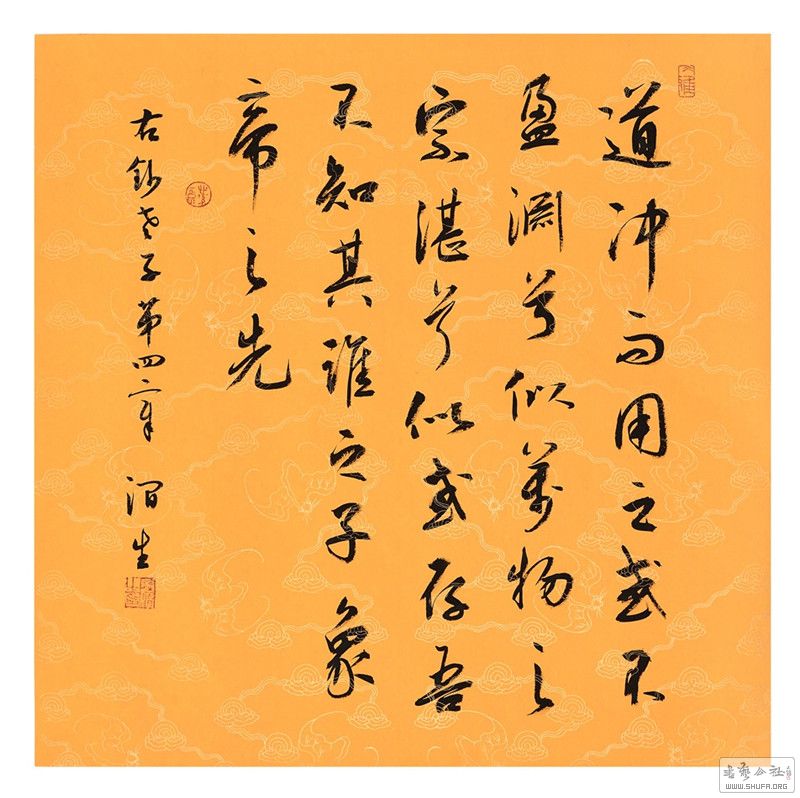 道冲而用之或不
盈淵兮似萬物之
宗湛兮似或存吾
不知其誰之子象
帝之先
右鈔老子第四章 生
书艺公社
WWW.SHUFA.ORG